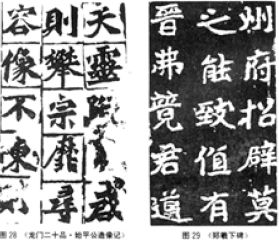 夫靈
則攀宗靡尋
容像不陳則
图28 《龙门二十品·始平公造像记》
州府招辟莫
之能致值有
晉弗竟君道
图29 《郑羲下碑》